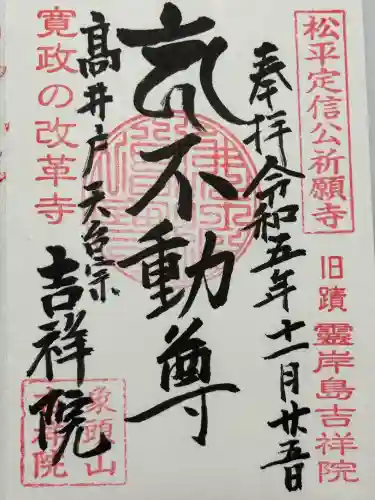 松平定信公祈願寺
旧蹟 靈岸島吉祥院
奉拝 令和五年十一月廿五日
不動尊
髙井戸 天台宗
吉祥院
寛政の改革寺
象頭山
吉祥院